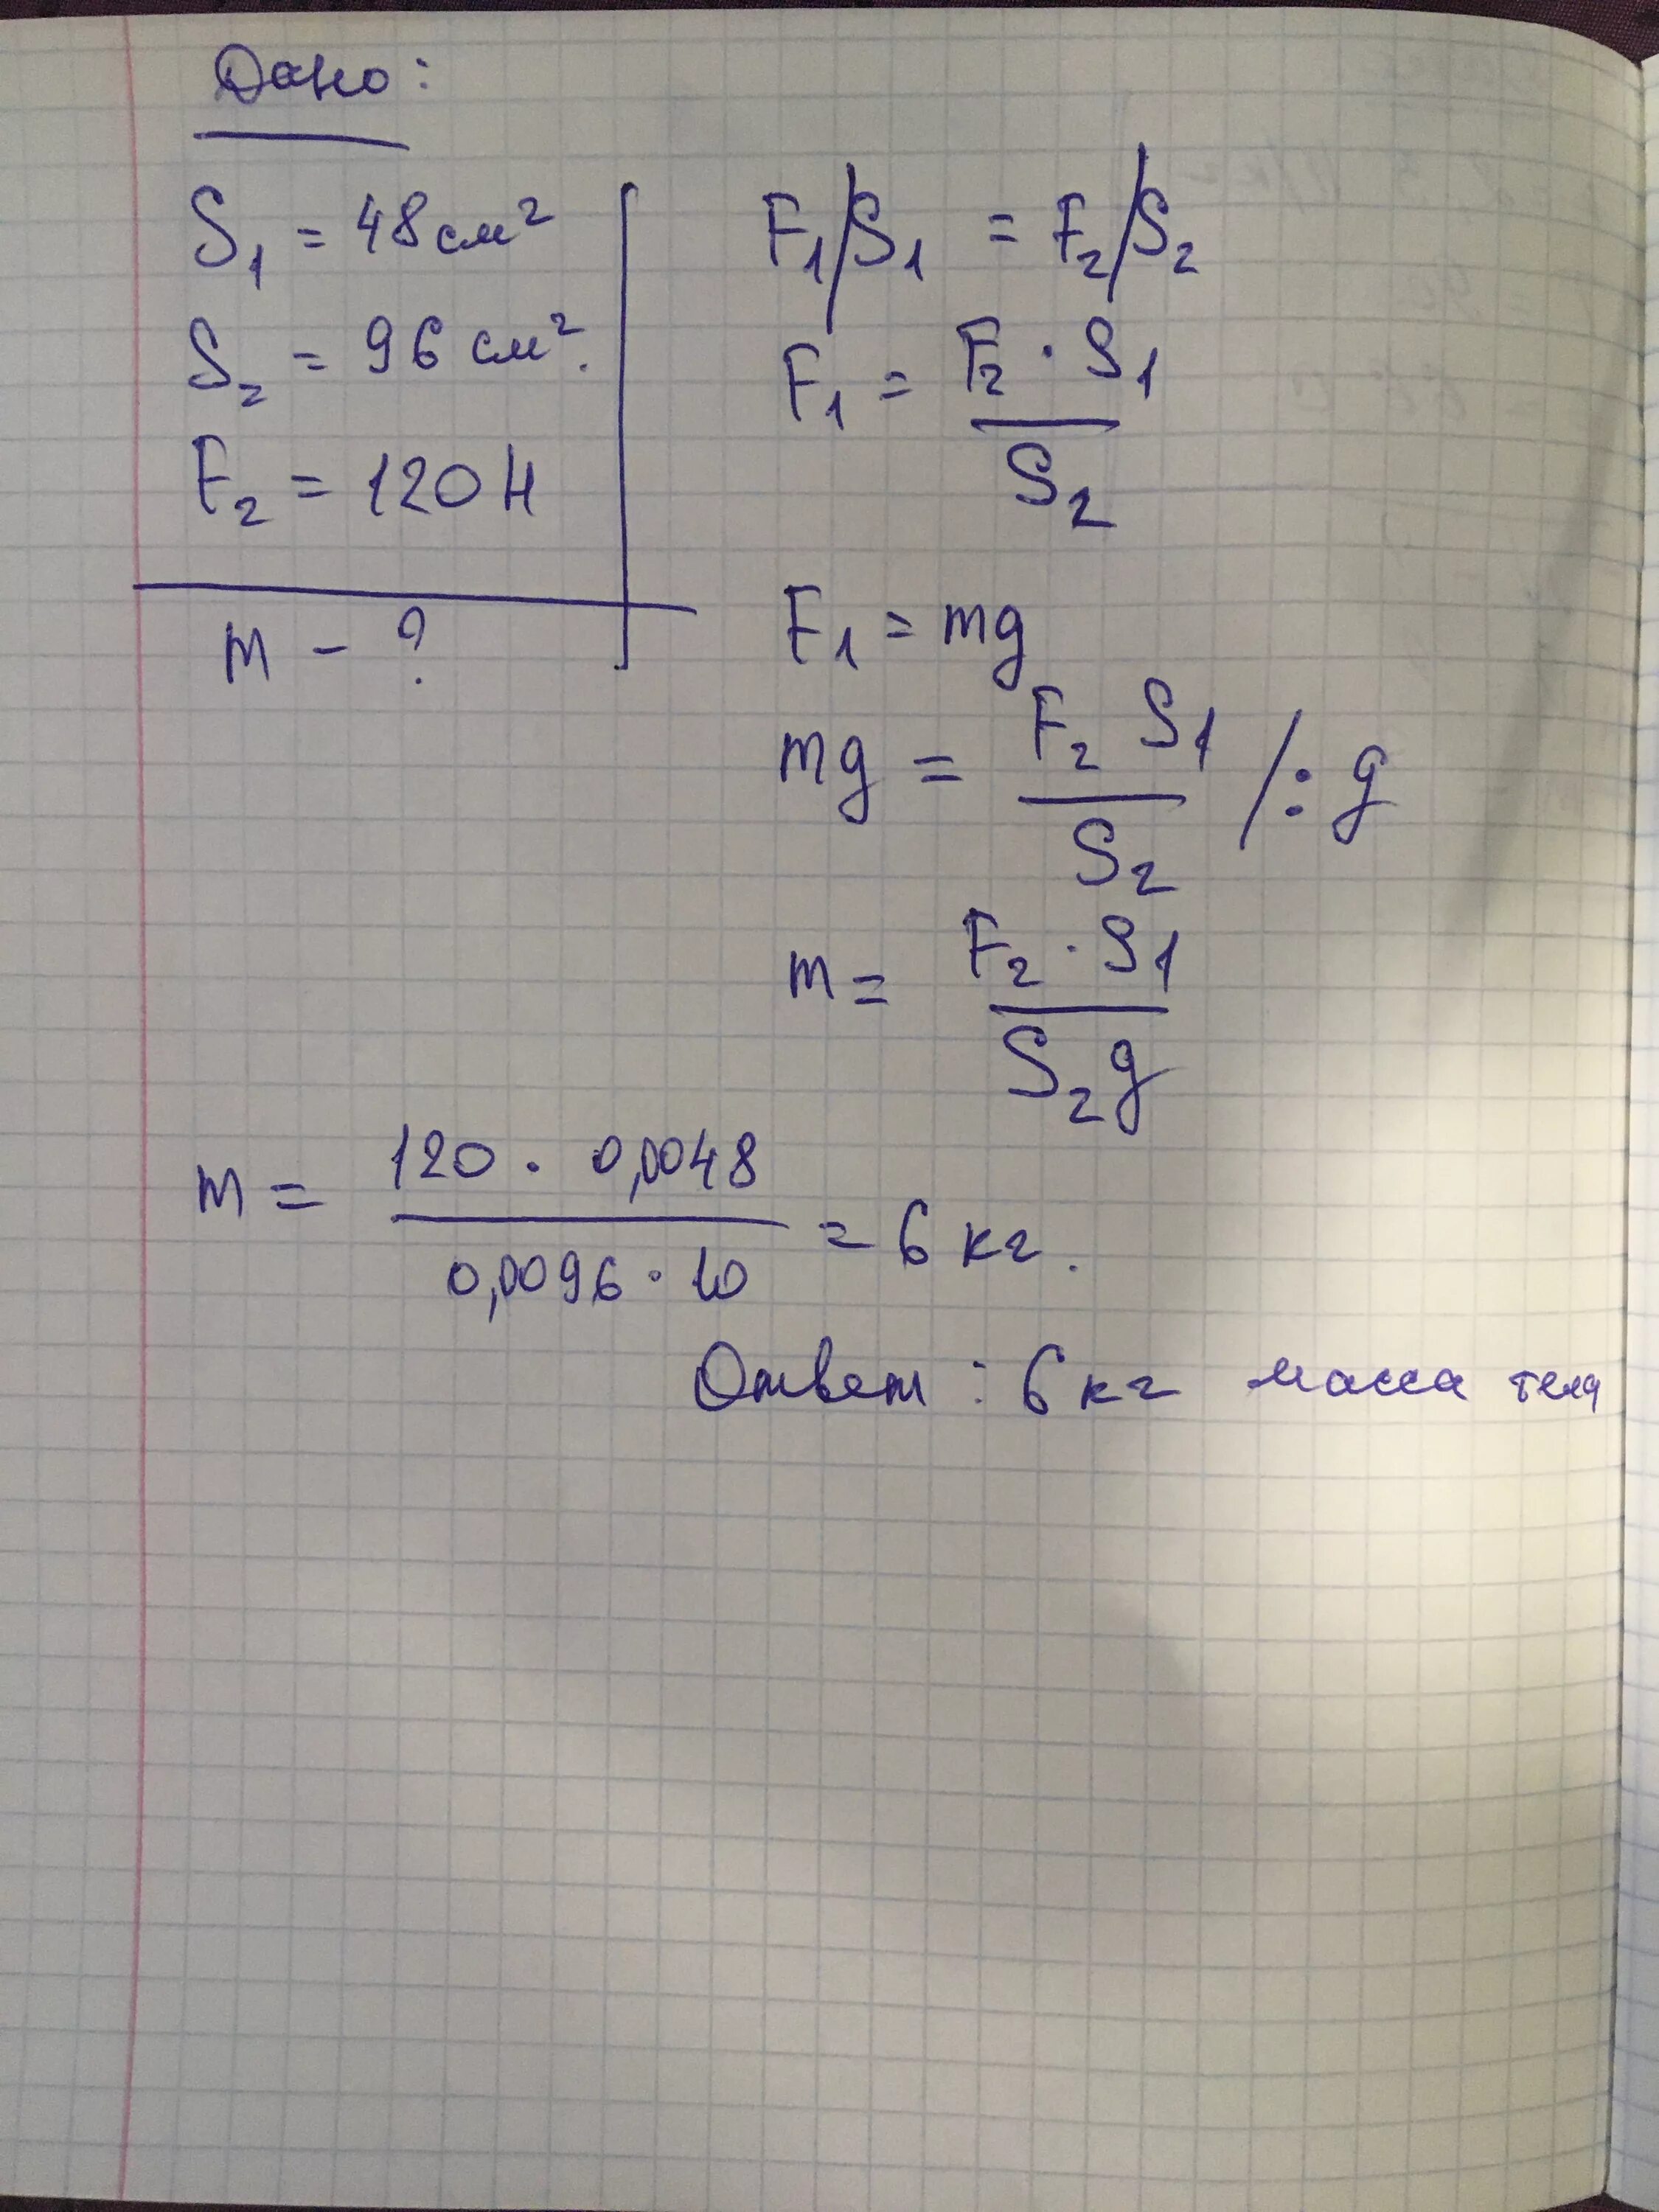 Дано:
S₁ = 48 см²
S₂ = 96 см².
F₂ = 120 Н
m - ?
F₁/S₁ = F₂/S₂
F₁ = F₂ · S₁ / S₂
F₁ = mg
mg = F₂ S₁ / S₂ /: g
m = F₂ · S₁ / S₂ g
m = 120 · 0,0048 / 0,0096 · 10 = 6 кг.
Ответ: 6 кг масса тела